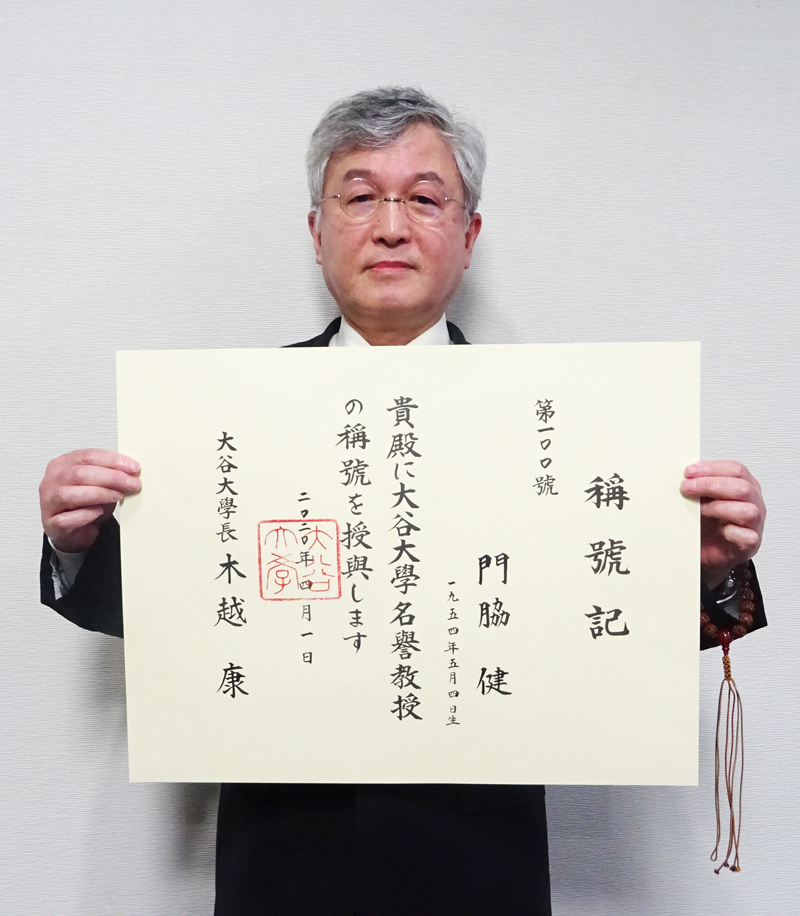 稱號記
第一〇〇號
門脇 健
一九五四年五月四日生
貴殿に大谷大學名譽教授
の稱號を授與します
二〇二〇年四月一日
大谷大學長 木越 康
大谷大學